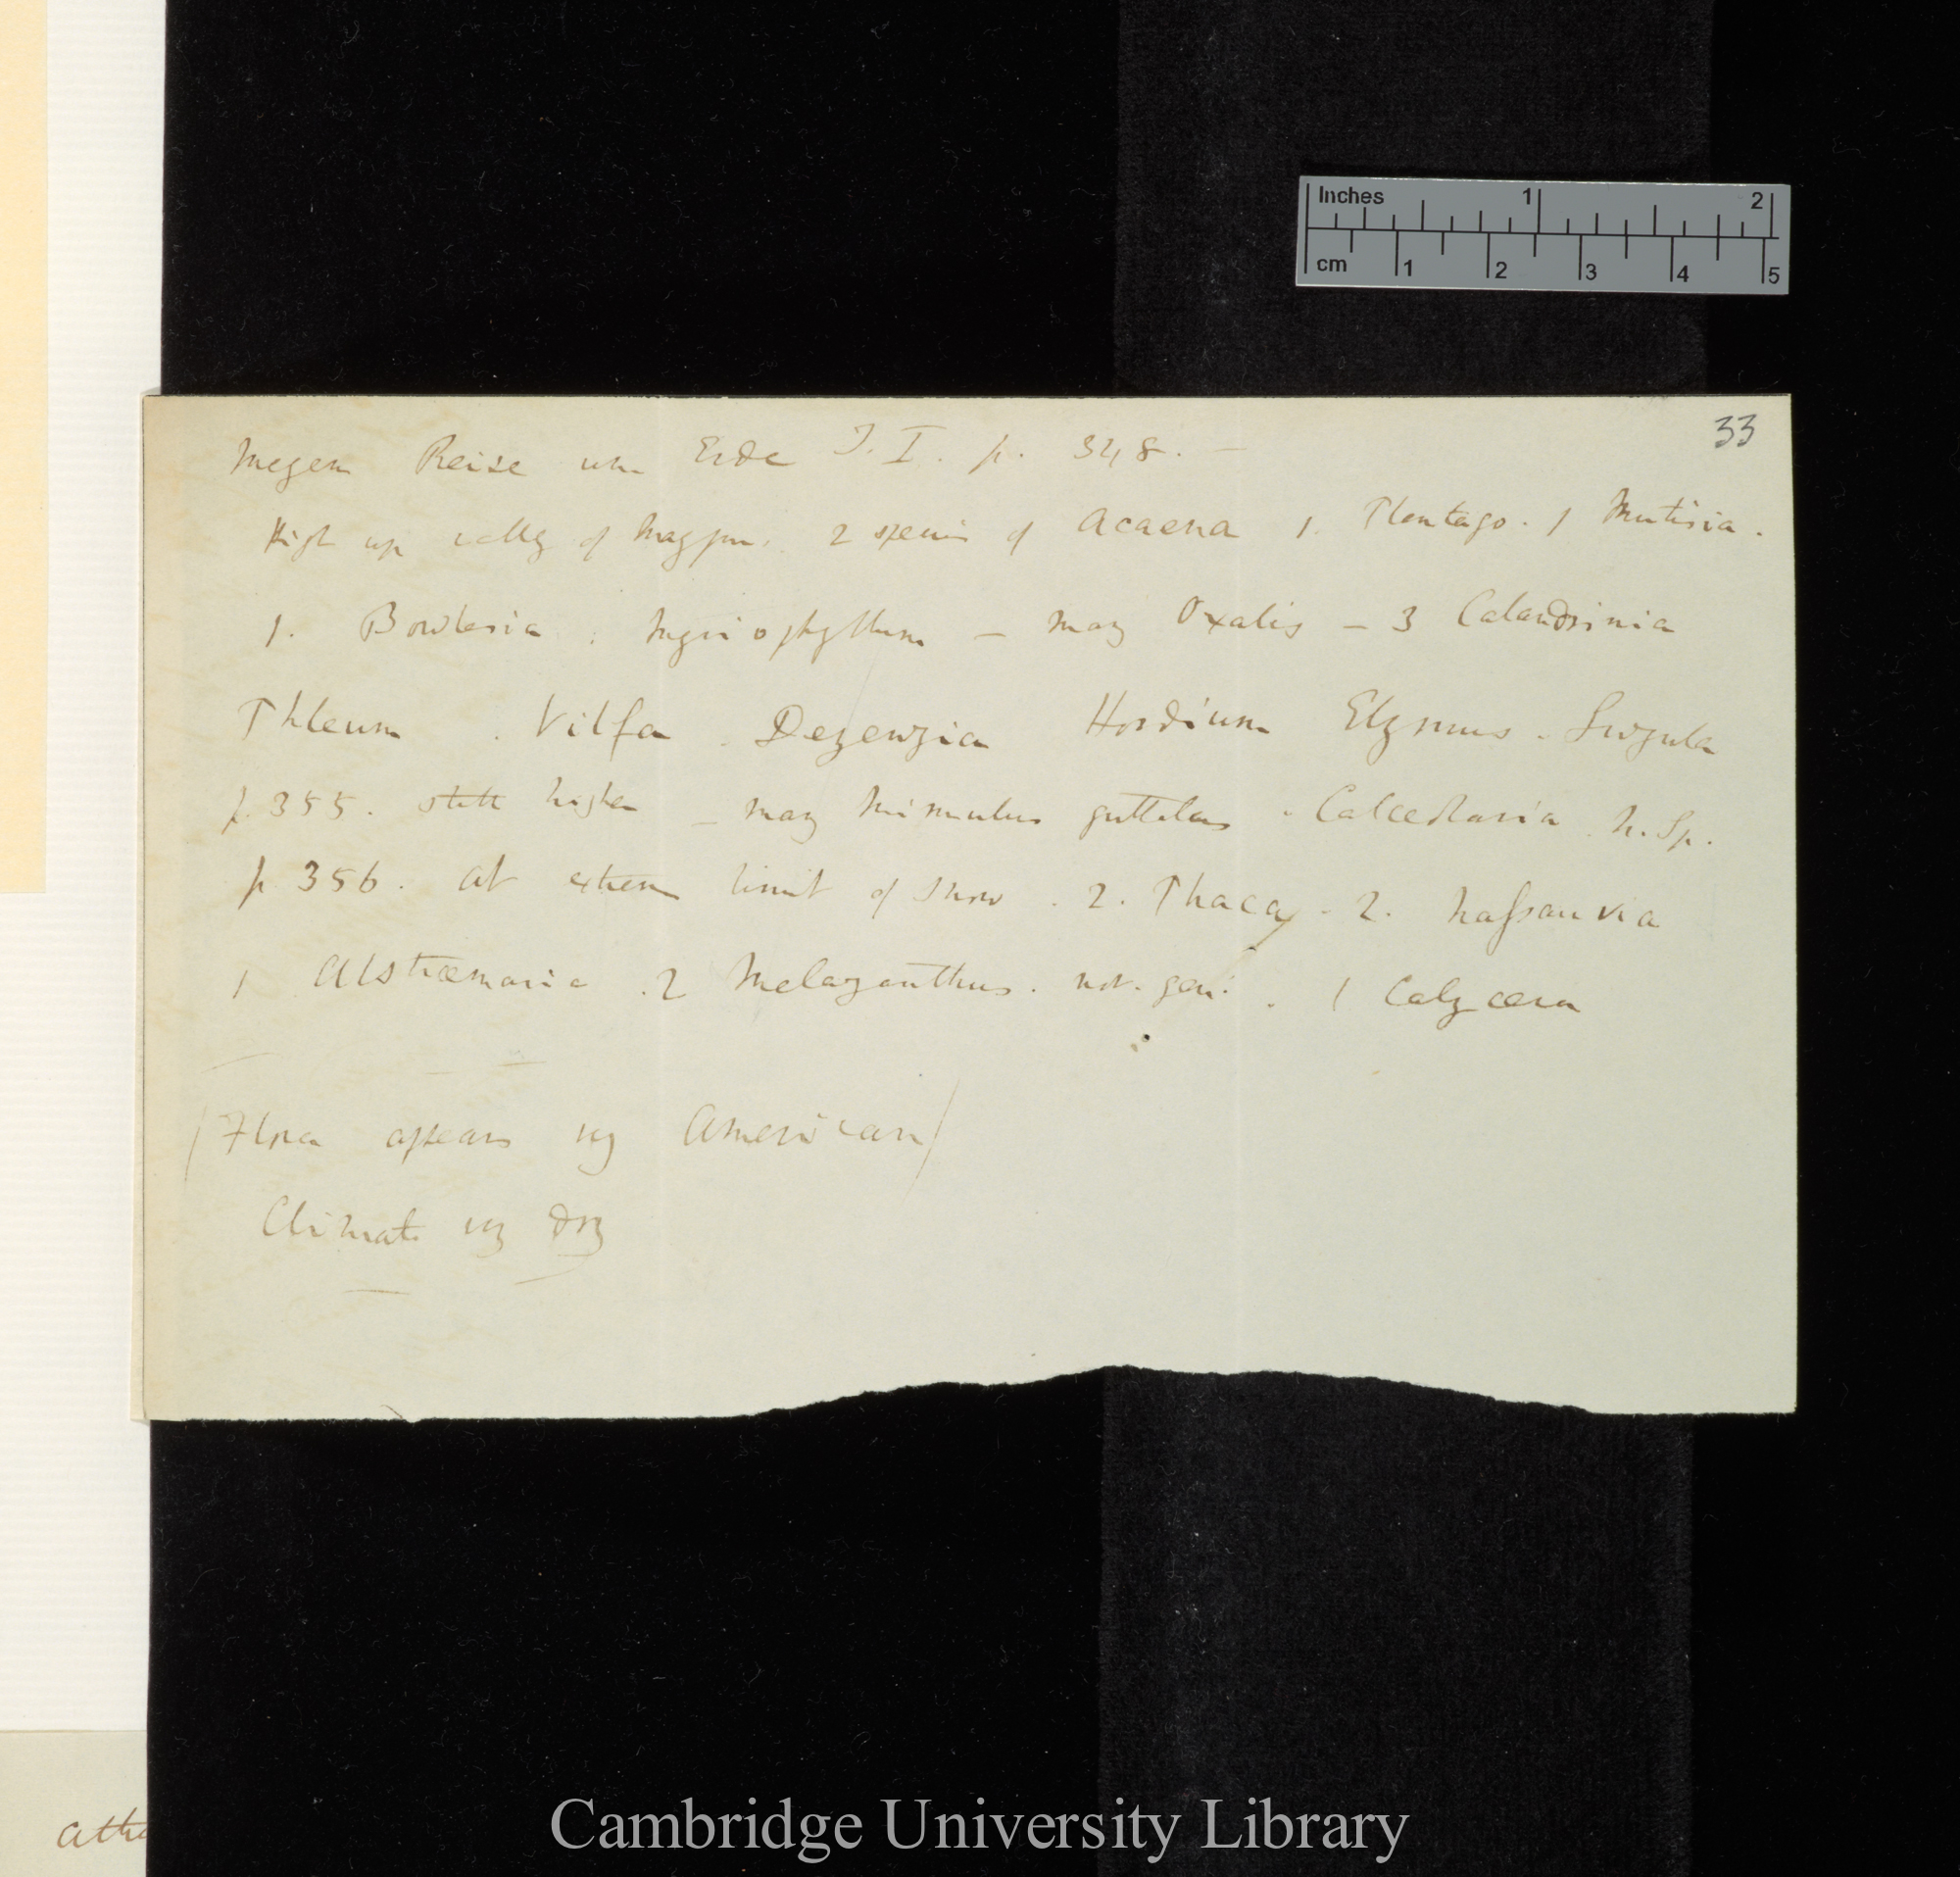 33
Meyen Reise um Erde T. I. p. 348. —
High up valley of Maypu. 2 species of Acaena 1. Plantago. 1 Mutisia.
1. Bowlesia. Myriophyllum — many Oxalis — 3 Calandrinia
Phleum. Vilfa. Deyeuxia Hordium Elymus. Luzula
p. 355. still higher — many Mimulus guttatus. Calceolaria n. Sp.
p 356. at extreme limit of snow. 2. Phaca. 2. Nassauvia
1 Alstræmaria. 2 Melazanthus. nov. gen. 1 Calycera
(Flora appears very American)
Climate very dry
Inches 1 2
cm 1 2 3 4 5
Cambridge University Library